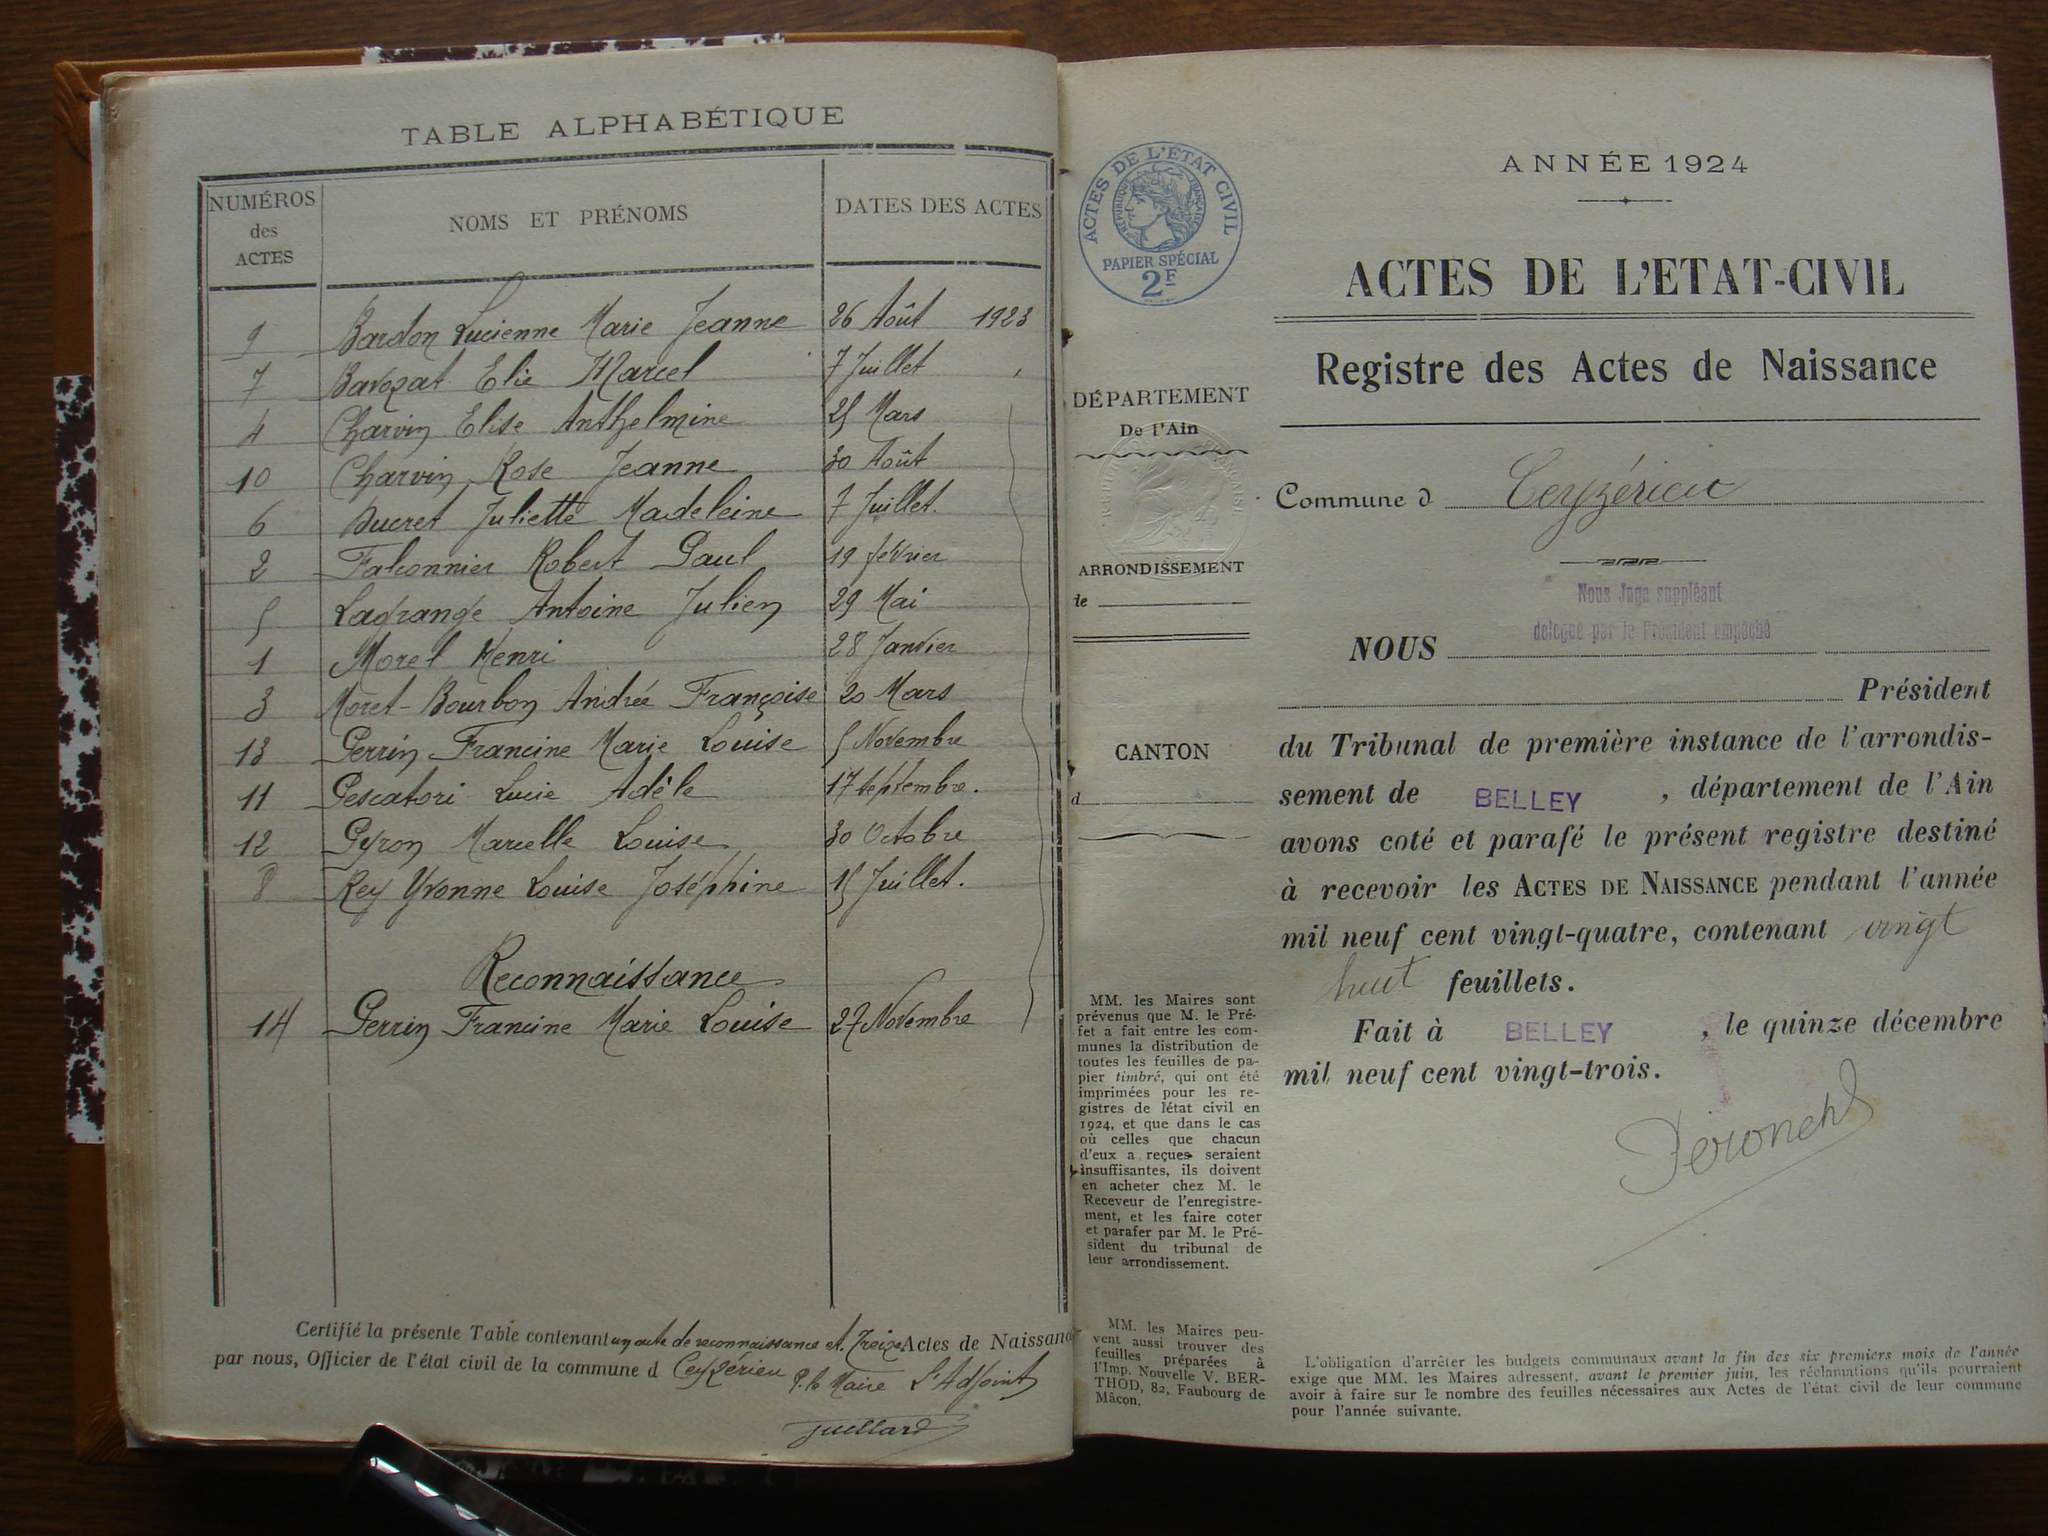 TABLE ALPHABÉTIQUE
NUMÉROS des ACTES NOMS ET PRÉNOMS DATES DES ACTES
9 Bardon Lucienne Marie Jeanne 26 Août 1923
7 Bavozat Elie Marcel 7 Juillet
4 Charvin Elise Anthelmine 25 Mars
10 Charvin Rose Jeanne 30 Août
6 Ducret Juliette Madeleine 7 Juillet.
2 Falconnier Robert Paul 19 février
5 Lagrange Antoine Julien 29 Mai
1 Morel Henri 28 Janvier
3 Moret-Bourbon Andrée Françoise 20 Mars
13 Perrin Francine Marie Louise 5 Novembre
11 Pescatori Lucie Adèle 17 septembre.
12 Peyron Marcelle Louise 30 Octobre
8 Rey Yvonne Louise Joséphine 15 Juillet.
Reconnaissance
14 Perrin Francine Marie Louise 27 Novembre
Certifié la présente Table contenant un acte de reconnaissance et Treize Actes de Naissanc
par nous, Officier de l'état civil de la commune d Ceyzérieu P. le Maire L'Adjoint
Juillard
ACTES DE L'ÉTAT CIVIL
RÉPUBLIQUE FRANÇAISE
PAPIER SPÉCIAL
2F
DÉPARTEMENT
De l'Ain
ARRONDISSEMENT
de
CANTON
d
MM. les Maires sont
prévenus que M. le Pré-
fet a fait entre les com-
munes la distribution de
toutes les feuilles de pa-
pier timbré, qui ont été
imprimées pour les re-
gistres de l'état civil en
1924, et que dans le cas
où celles que chacun
d'eux a reçues seraient
insuffisantes, ils doivent
en acheter chez M. le
Receveur de l'enregistre-
ment, et les faire coter
et parafer par M. le Pré-
sident du tribunal de
leur arrondissement.
MM. les Maires peu-
vent aussi trouver des
feuilles préparées à
l'Imp. Nouvelle V. BER-
THOD, 82, Faubourg de
Mâcon.
ANNÉE 1924
ACTES DE L'ETAT-CIVIL
Registre des Actes de Naissance
Commune d Ceyzérieu
Nous Juge suppléant
délégué par le Président empêché
NOUS
Président
du Tribunal de première instance de l'arrondis-
sement de BELLEY, département de l'Ain
avons coté et parafé le présent registre destiné
à recevoir les ACTES DE NAISSANCE pendant l'année
mil neuf cent vingt-quatre, contenant vingt
huit feuillets.
Fait à BELLEY, le quinze décembre
mil neuf cent vingt-trois.
L'obligation d'arrêter les budgets communaux avant la fin des six premiers mois de l'année
exige que MM. les Maires adressent, avant le premier juin, les réclamations qu'ils pourraient
avoir à faire sur le nombre des feuilles nécessaires aux Actes de l'état civil de leur commune
pour l'année suivante.